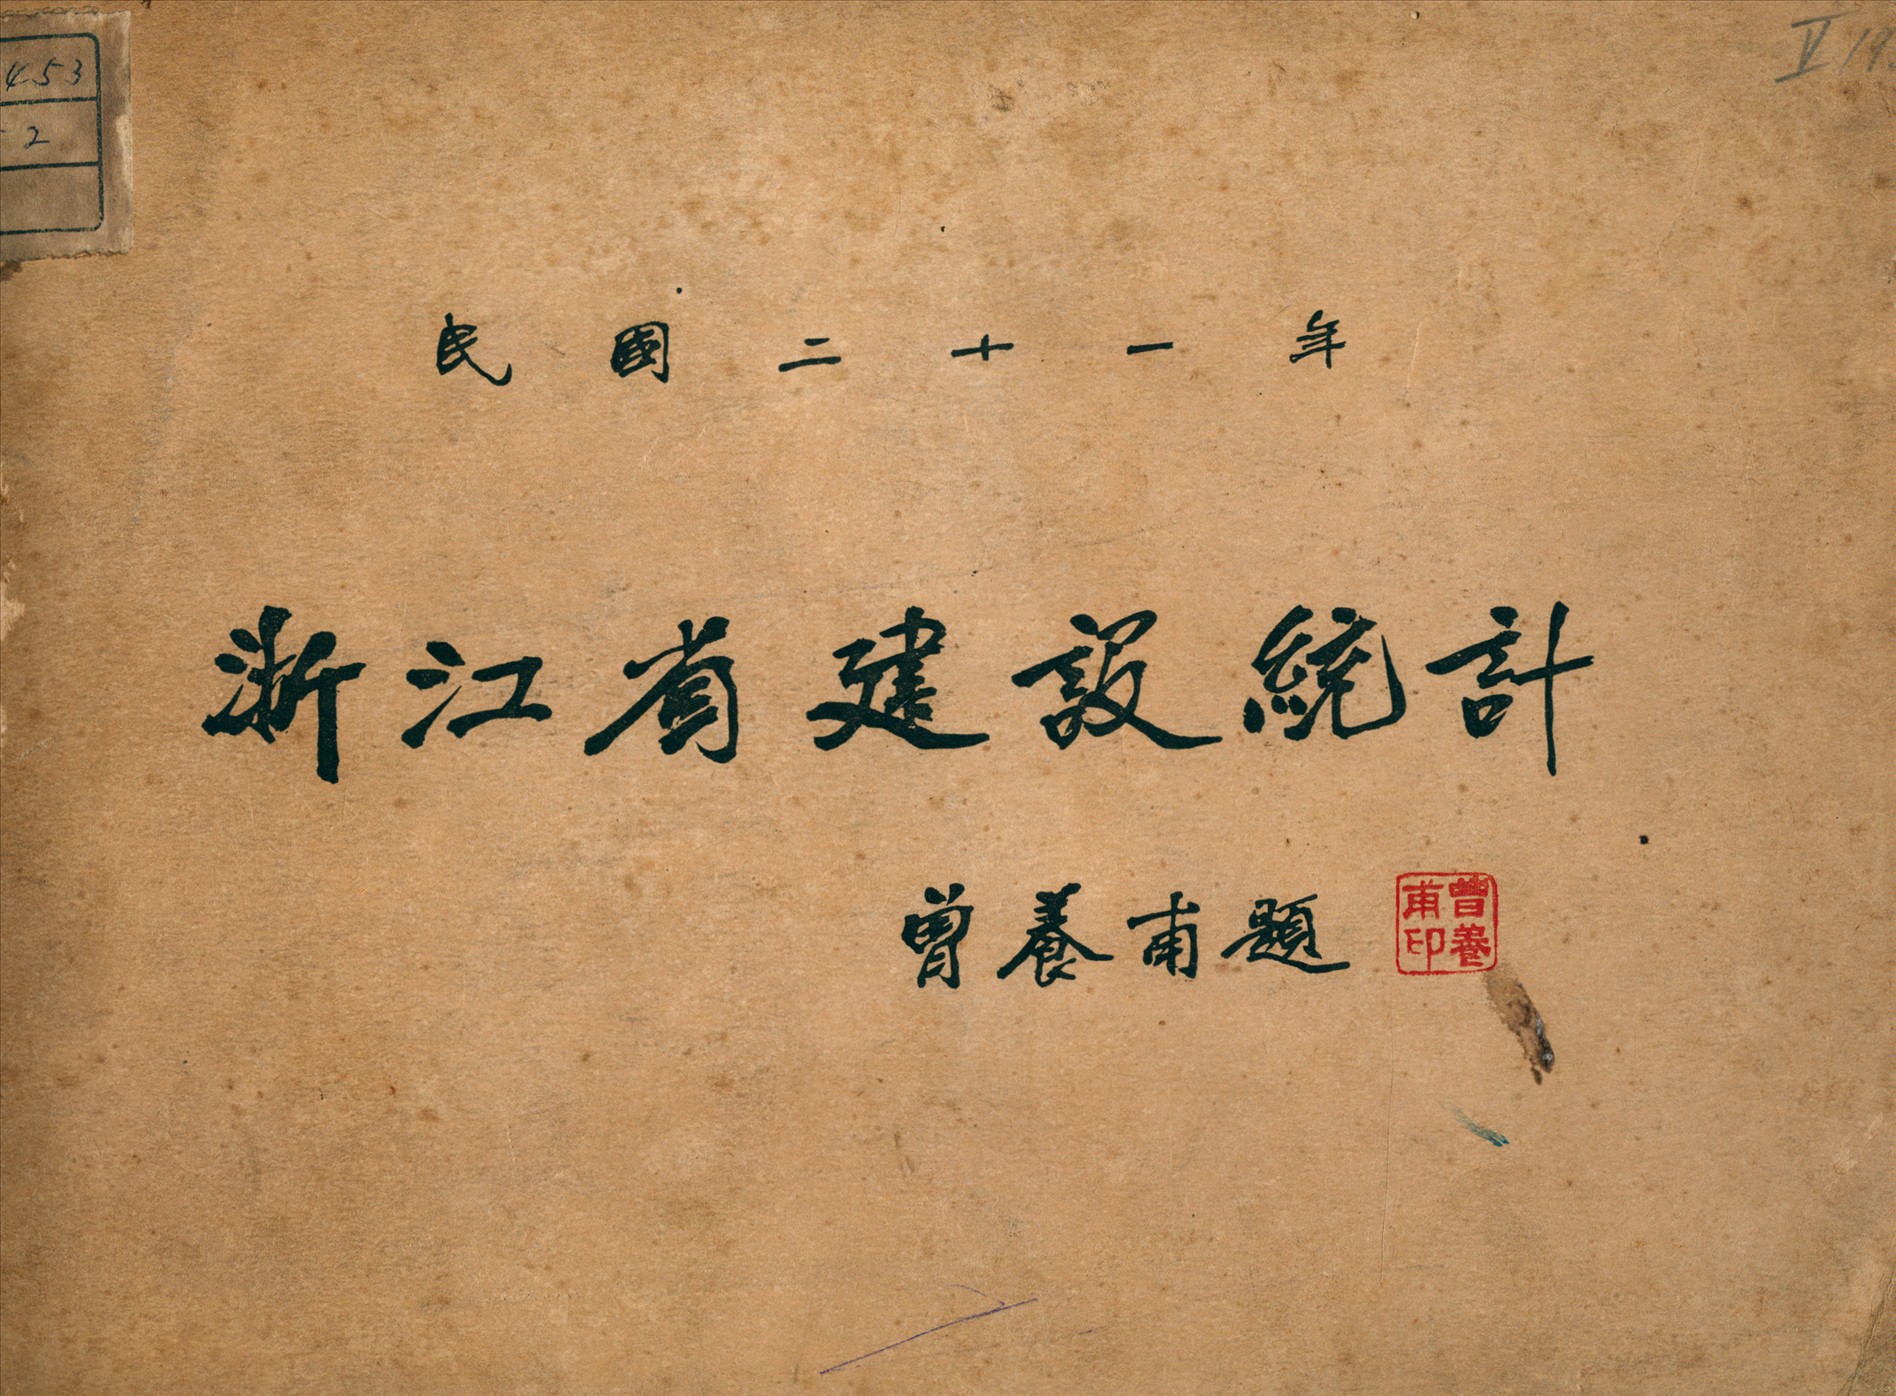 453
2
V 19
民國二十一年
浙江省建設統計
曾養甫題
曾養甫印